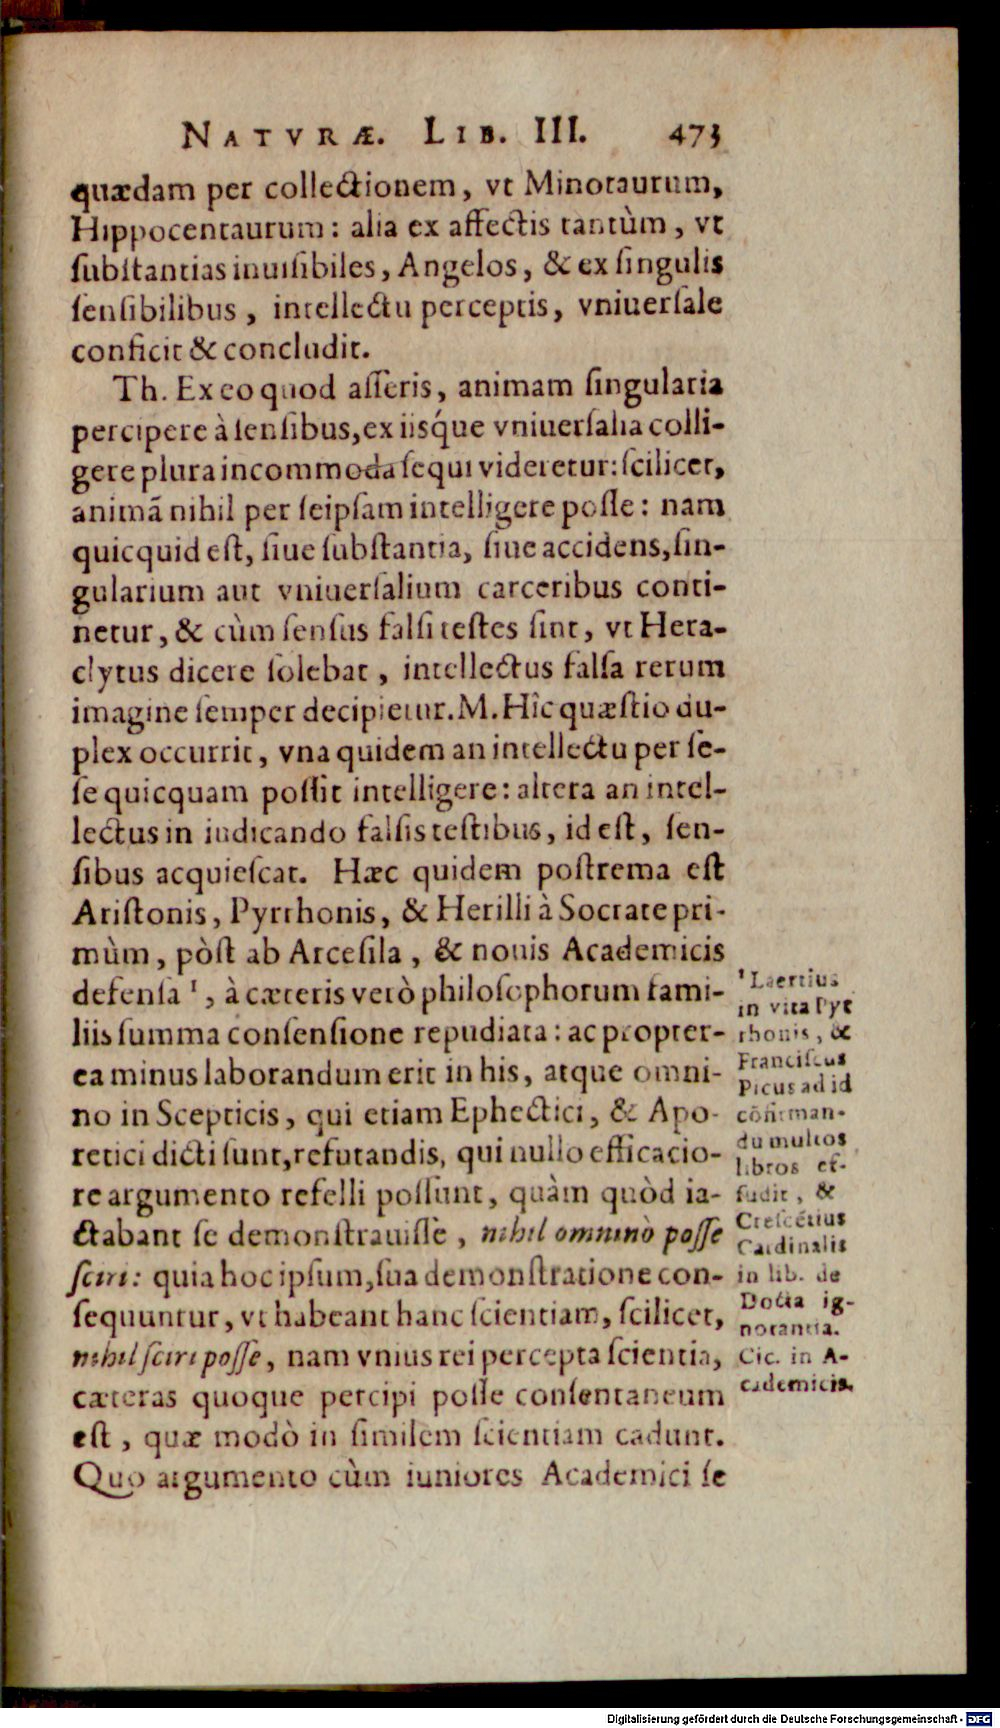 NATVRÆ. LIB. III. 473
quædam per collectionem, vt Minotaurum,
Hippocentaurum: alia ex affectis tantùm, vt
ſubſtantias inuiſibiles, Angelos, & ex ſingulis
ſenſibilibus, intellectu perceptis, vniuerſale
conficit & concludit.
Th. Ex eo quod aſſeris, animam ſingularia
percipere à ſenſibus, ex iiſq́ue vniuerſalia colli-
gere plura incommoda ſequi videretur: ſcilicet,
animã nihil per ſeipſam intelligere poſſe: nam
quicquid eſt, ſiue ſubſtantia, ſiue accidens, ſin-
gularium aut vniuerſalium carceribus conti-
netur, & cùm ſenſus falſi teſtes ſint, vt Hera-
clytus dicere ſolebat, intellectus falſa rerum
imagine ſemper decipietur. M. Hîc quæſtio du-
plex occurrit, vna quidem an intellectu per ſe-
ſe quicquam poſſit intelligere: altera an intel-
lectus in iudicando falſis teſtibus, id eſt, ſen-
ſibus acquieſcat. Hæc quidem poſtrema eſt
Ariſtonis, Pyrrhonis, & Herilli à Socrate pri-
mùm, pòſt ab Arceſila, & nouis Academicis
defenſa ¹, à cæteris verò philoſophorum fami-
liis ſumma conſenſione repudiata: ac propter-
ea minus laborandum erit in his, atque omni-
no in Scepticis, qui etiam Ephectici, & Apo-
retici dicti ſunt, refutandis, qui nullo efficacio-
re argumento refelli poſſunt, quàm quòd ia-
ctabant ſe demonſtrauiſſe, nihil omninò poſſe
ſciri: quia hoc ipſum, ſua demonſtratione con-
ſequuntur, vt habeant hanc ſcientiam, ſcilicet,
nihil ſciri poſſe, nam vnius rei percepta ſcientia,
cæteras quoque percipi poſſe conſentaneum
eſt, quæ modò in ſimilem ſcientiam cadunt.
Quo argumento cùm iuniores Academici ſe
¹ Laertius
in vita Pyr
rhonis, &
Franciſcus
Picus ad id
cõfirman-
du multos
libros ef-
fudit, &
Creſcẽtius
Cardinalis
in lib. de
Docta ig-
norantia.
Cic. in A-
cademicis.
Digitalisierung gefördert durch die Deutsche Forschungsgemeinschaft - DFG